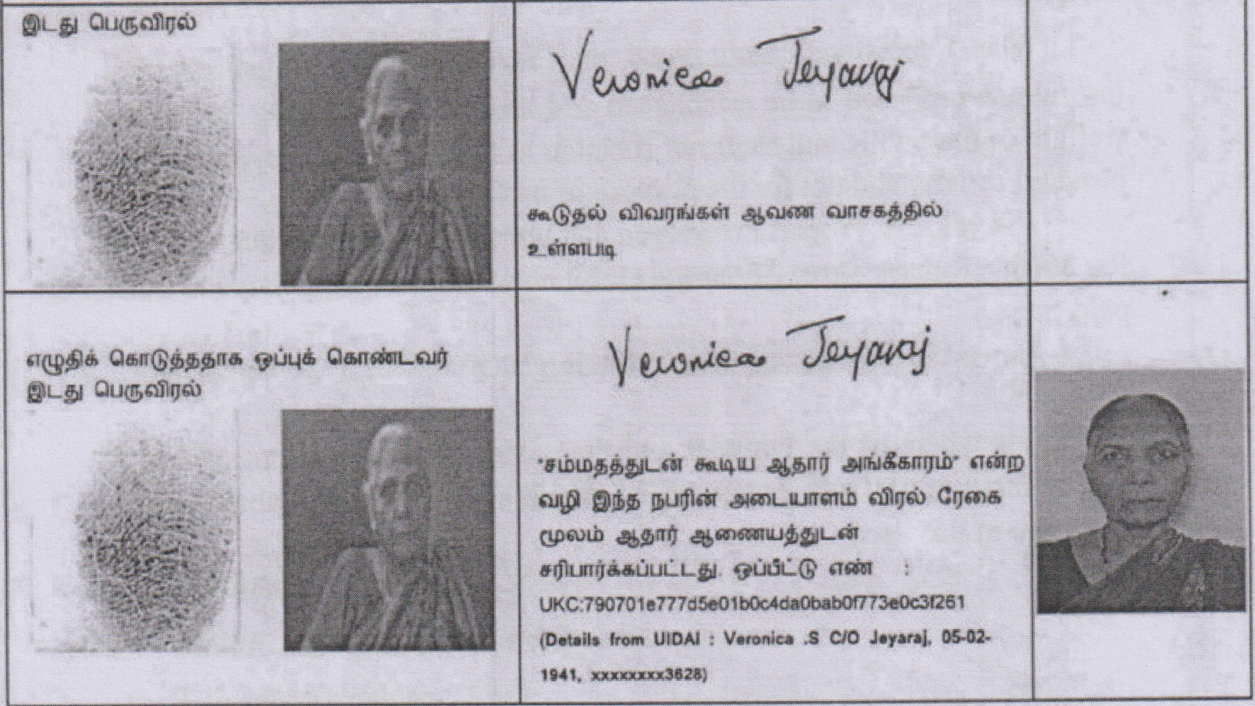 இடது பெருவிரல்
Veronica Jeyaraj
கூடுதல் விவரங்கள் ஆவண வாசகத்தில்
உள்ளபடி
எழுதிக் கொடுத்ததாக ஒப்புக் கொண்டவர்
இடது பெருவிரல்
Veronica Jeyaraj
"சம்மதத்துடன் கூடிய ஆதார் அங்கீகாரம்" என்ற
வழி இந்த நபரின் அடையாளம் விரல் ரேகை
மூலம் ஆதார் ஆணையத்துடன்
சரிபார்க்கப்பட்டது. ஒப்பீட்டு எண் :
UKC:790701e777d5e01b0c4da0bab0f773e0c3f261
(Details from UIDAI : Veronica .S C/O Jeyaraj, 05-02-
1941, xxxxxxxx3628)